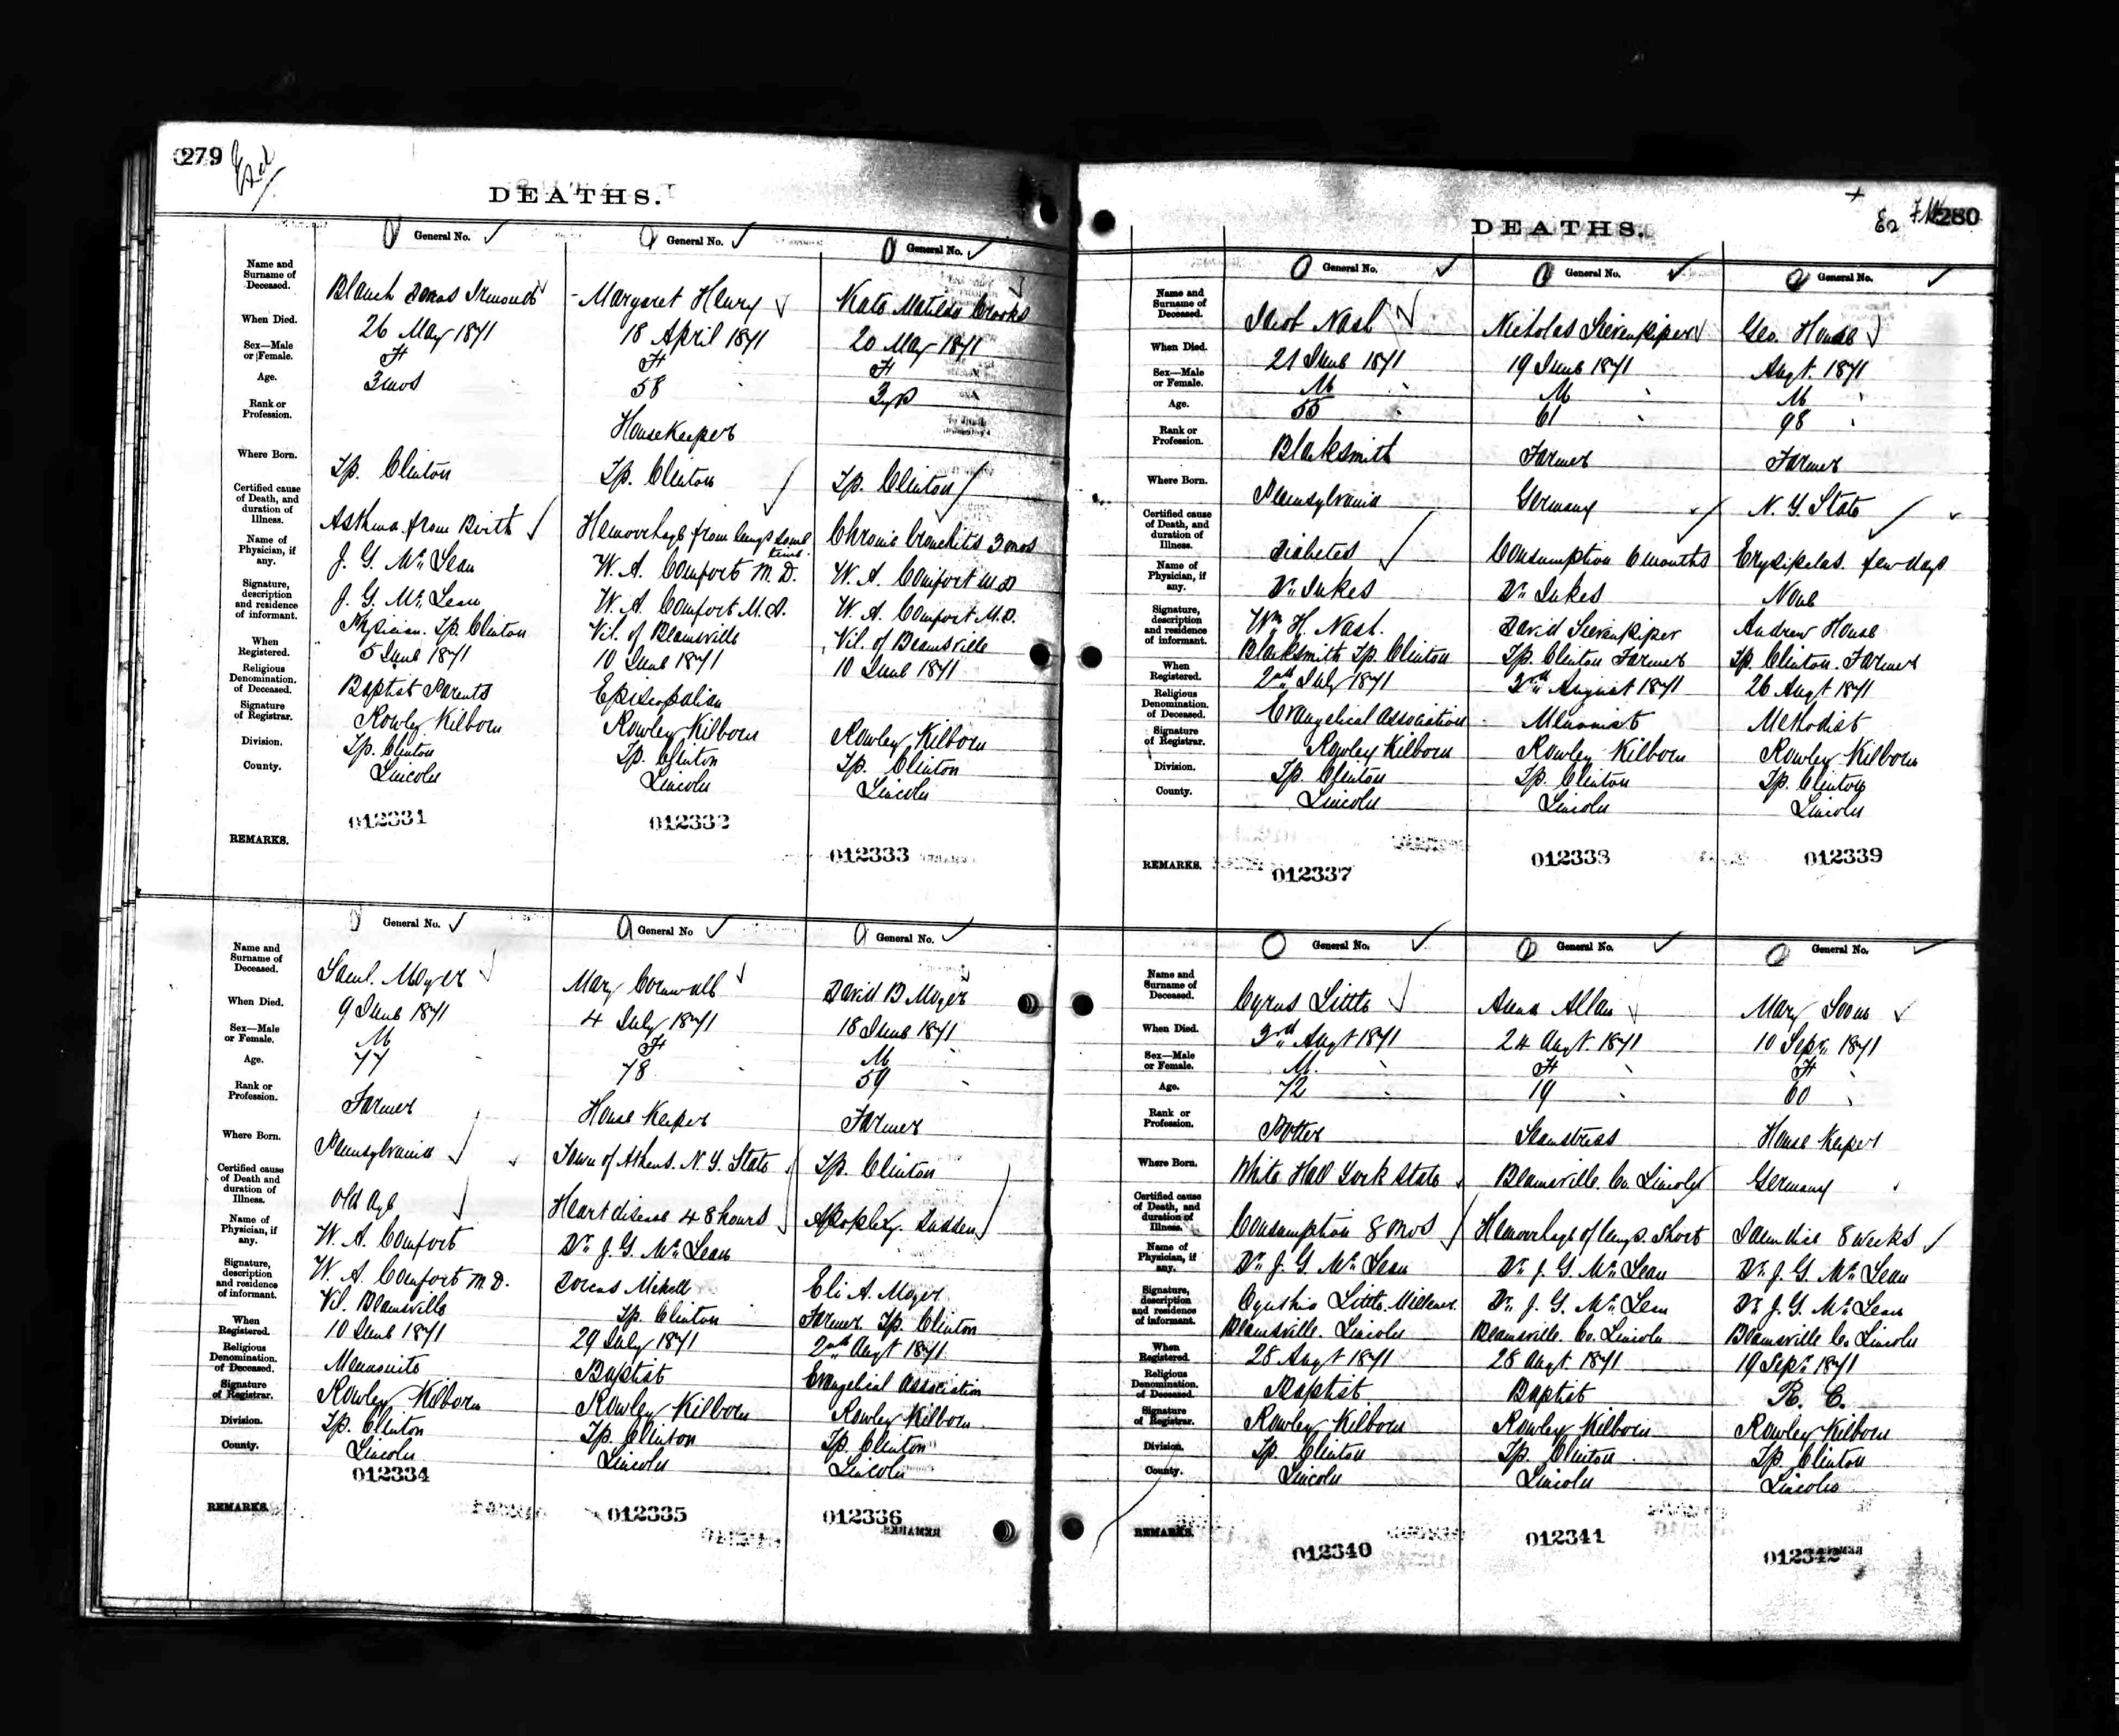 279
DEATHS.
General No. General No. General No.
Name and Surname of Deceased. Blanch Margaret Henry Kate Matilda Crooks
When Died. 26 May 1871 18 April 1871 20 May 1871
Sex—Male or Female. F F F
Age. 3 mos 58 3 yrs
Rank or Profession. Housekeeper
Where Born. Tp. Clinton Tp. Clinton Tp. Clinton
Certified cause of Death, and duration of Illness. Asthma from Birth Hemorrhage from lungs some time. Chronic bronchitis 3 mos
Name of Physician, if any. J. G. Mc Lean W. A. Comfort M. D. W. A. Comfort M D
Signature, description and residence of informant. J. G. Mc Lean W. A. Comfort M. D. W. A. Comfort M. D.
Physician. Tp. Clinton Vil. of Beamsville Vil. of Beamsville
When Registered. 5 June 1871 10 June 1871 10 June 1871
Religious Denomination. of Deceased. Baptist Parents Episcopalian
Signature of Registrar. Rowley Kilborn Rowley Kilborn Rowley Kilborn
Division. Tp. Clinton Tp. Clinton Tp. Clinton
County. Lincoln Lincoln Lincoln
012331 012332 012333
REMARKS.
General No. General No General No.
Name and Surname of Deceased. Saml. Moyer Mary Cornwall David B Moyer
When Died. 9 June 1871 4 July 1871 18 June 1871
Sex—Male or Female. M F M
Age. 77 78 59
Rank or Profession. Farmer House Keeper Farmer
Where Born. Pennsylvania Town of Athens. N. Y. State Tp. Clinton
Certified cause of Death and duration of Illness. Old Age Heart disease 48 hours Apoplexy. Sudden
Name of Physician, if any. W. A. Comfort Dr. J. G. Mc Lean
Signature, description and residence of informant. W. A. Comfort M. D. Dorcas Eli A. Moyer
Vil. Beamsville Tp. Clinton Farmer Tp. Clinton
When Registered. 10 June 1871 29 July 1871 2nd Augt 1871
Religious Denomination. of Deceased. Menonite Baptist Evangelical Association
Signature of Registrar. Rowley Kilborn Rowley Kilborn Rowley Kilborn
Division. Tp. Clinton Tp. Clinton Tp. Clinton
County. Lincoln Lincoln Lincoln
012334 012335 012336
REMARKS.
280
DEATHS.
General No. General No. General No.
Name and Surname of Deceased. Jacob Nash Nicholas Sievenpiper Geo. House
When Died. 21 June 1871 19 June 1871 Augt. 1871
Sex—Male or Female. M M M
Age. 55 61 98
Rank or Profession. Blacksmith Farmer Farmer
Where Born. Pennsylvania Germany N. Y. State
Certified cause of Death, and duration of Illness. Diabetes Consumption 6 months Erysipelas. few days
Name of Physician, if any. Dr. Jukes Dr. Jukes None
Signature, description and residence of informant. Wm H. Nash. David Sievenpiper Andrew House
Blacksmith Tp. Clinton Tp. Clinton Farmer Tp. Clinton. Farmer
When Registered. 2nd July 1871 3rd August 1871 26 Augt 1871
Religious Denomination. of Deceased. Evangelical Association Menonist Methodist
Signature of Registrar. Rowley Kilborn Rowley Kilborn Rowley Kilborn
Division. Tp. Clinton Tp. Clinton Tp. Clinton
County. Lincoln Lincoln Lincoln
REMARKS. 012337 012338 012339
General No. General No. General No.
Name and Surname of Deceased. Cyrus Little Anna Allan Mary
When Died. 3rd Augt 1871 24 Augt. 1871 10 Sepr. 1871
Sex—Male or Female. M. F F
Age. 72 19 60
Rank or Profession. Potter Seamstress House Keeper
Where Born. White Hall York State Beamsville. Co. Lincoln Germany
Certified cause of Death, and duration of Illness. Consumption 8 mos Hemorrhage of lungs. Short Jaundice 8 weeks
Name of Physician, if any. Dr. J. G. Mc Lean Dr. J. G. Mc Lean Dr. J. G. Mc Lean
Signature, description and residence of informant. Cynthia Little. Milliner. Dr. J. G. Mc Lean Dr J. G. Mc Lean
Beamsville. Lincoln Beamsville. Co. Lincoln Beamsville Co. Lincoln
When Registered. 28 Augt 1871 28 Augt 1871 19 Sepr. 1871
Religious Denomination. of Deceased. Baptist Baptist R. C.
Signature of Registrar. Rowley Kilborn Rowley Kilborn Rowley Kilborn
Division. Tp. Clinton Tp. Clinton Tp. Clinton
County. Lincoln Lincoln Lincoln
REMARKS. 012340 012341 012342